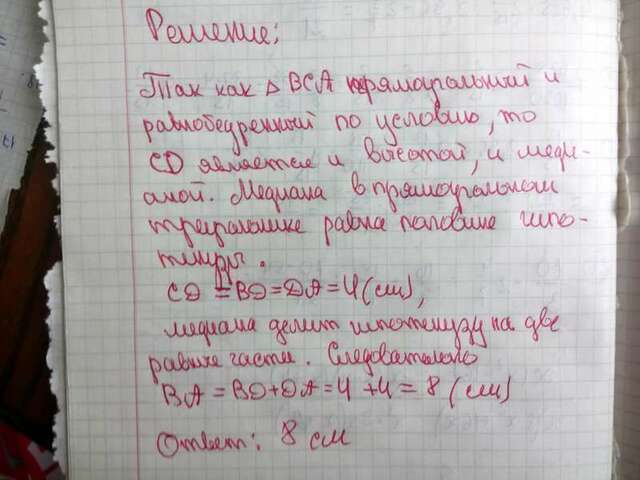 Решение:
Так как △ BCA прямоугольный и
равнобедренный по условию, то
CD является и высотой, и меди-
аной. Медиана в прямоугольном
треугольнике равна половине гипо-
тенузы.
CD = BD = DA = 4 (см),
медиана делит гипотенузу на две
равные части. Следовательно
BA = BD + DA = 4 + 4 = 8 (см)
Ответ: 8 см